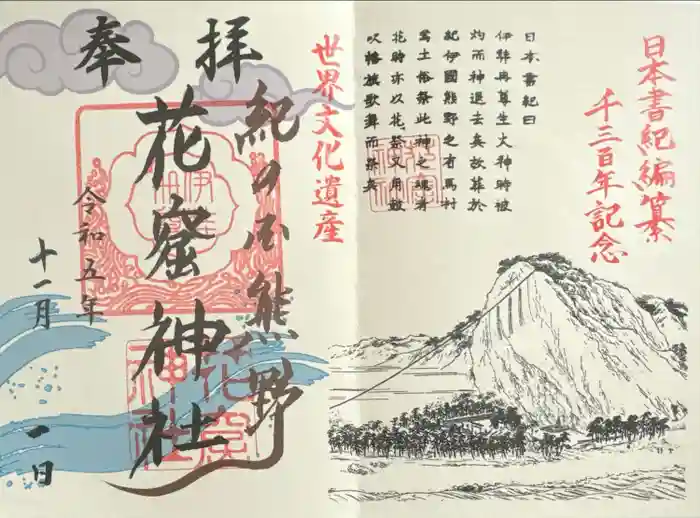 日本書紀編纂
千三百年記念
日本書紀曰
伊弉冉尊生火神時被
灼而神退去矣故葬於
紀伊國熊野之有馬村
焉土俗祭此神之魂者
花時亦以花祭又用鼓
吹幡旗歌舞而祭矣
世界文化遺産
紀の国熊野
奉拝
花窟神社
花窟神社
令和五年
十一月一日